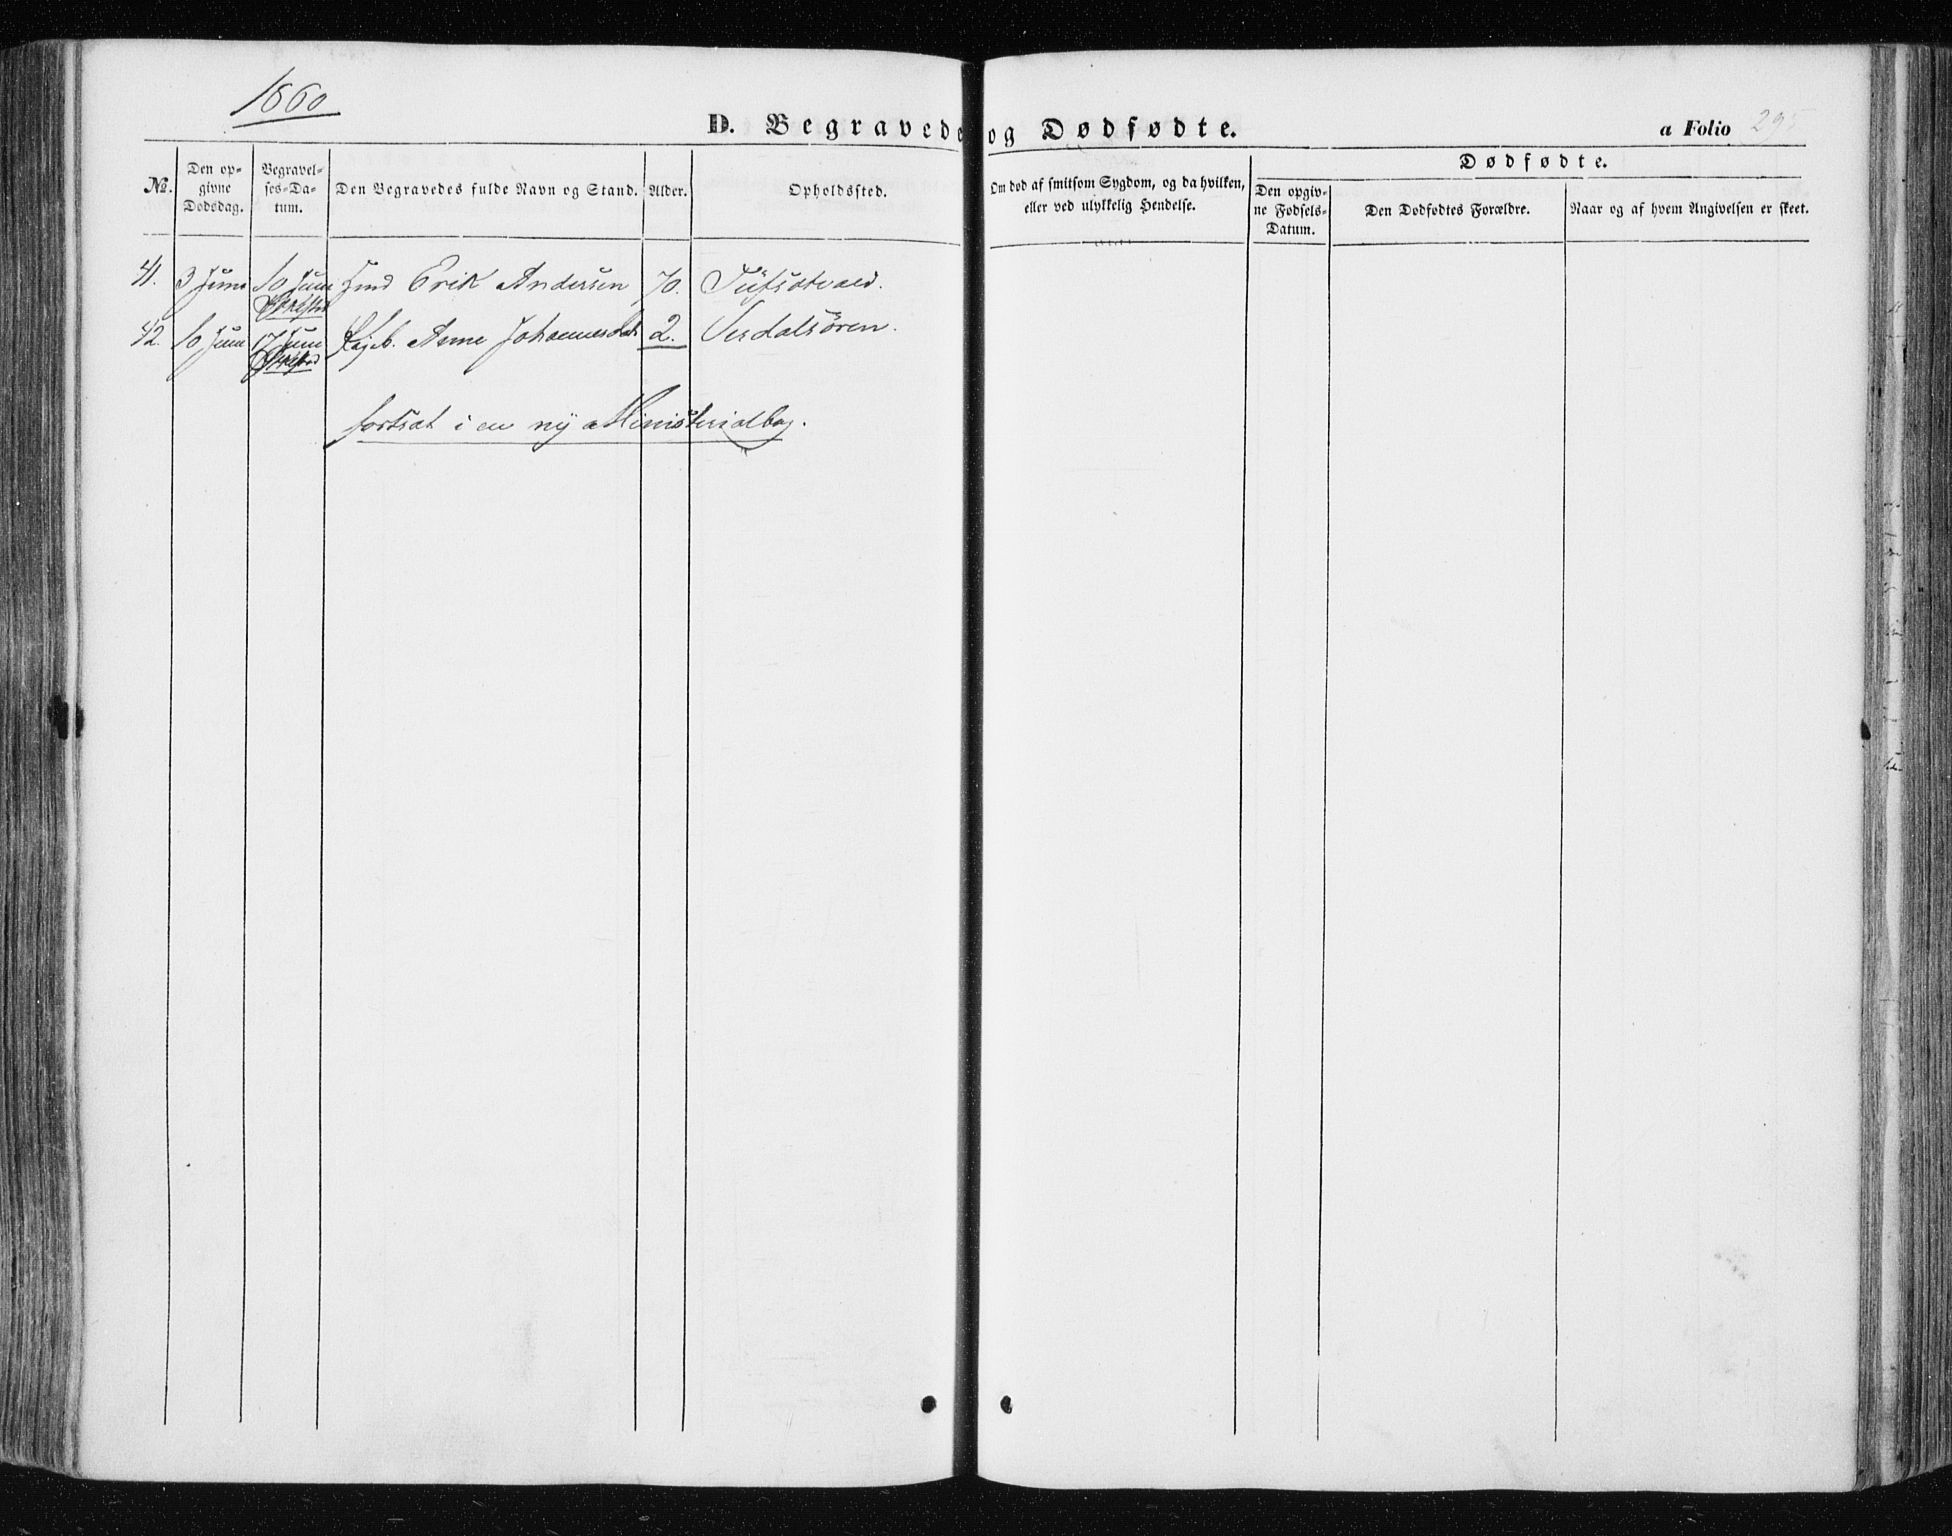 1860
D. Begravede og Dødfødte.
a Folio 295
No.
Den opgivne Dødsdag.
Begravelses-Datum.
Den Begravedes fulde Navn og Stand.
Alder.
Opholdssted.
Om død af smitsom Sygdom, og da hvilken, eller ved ulykkelig Hendelse.
Dødfødte.
Den opgivne Fødsels-Datum.
Den Dødfødtes Forældre.
Naar og af hvem Angivelsen er skeet.
41. 3 Juni 10 Juni Erik Andersen 70.
42. 10 Juni 17 Juni Anne Johannesdat 2. Verdalsören.
fortsat i en ny Ministerialbog.